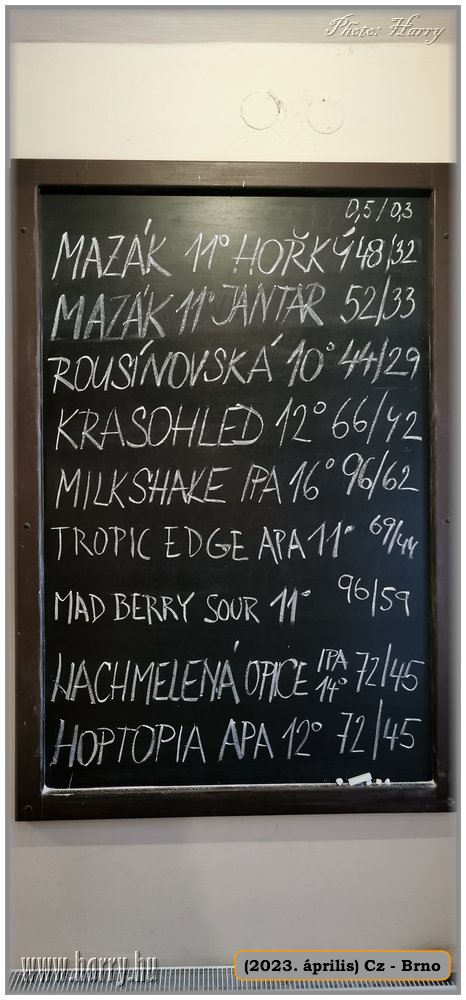 Photo: Harry
0,5/0,3
MAZÁK 11° HOŘKÝ 48/32
MAZÁK 11° JANTAR 52/33
ROUSÍNOVSKÁ 10° 44/29
KRASOHLED 12° 66/42
MILKSHAKE IPA 16° 96/62
TROPIC EDGE APA 11° 69/44
MAD BERRY SOUR 11° 96/59
HACHMELENÁ OPICE IPA 14° 72/45
HOPTOPIA APA 12° 72/45
www.horry.hu
(2023. április) Cz - Brno